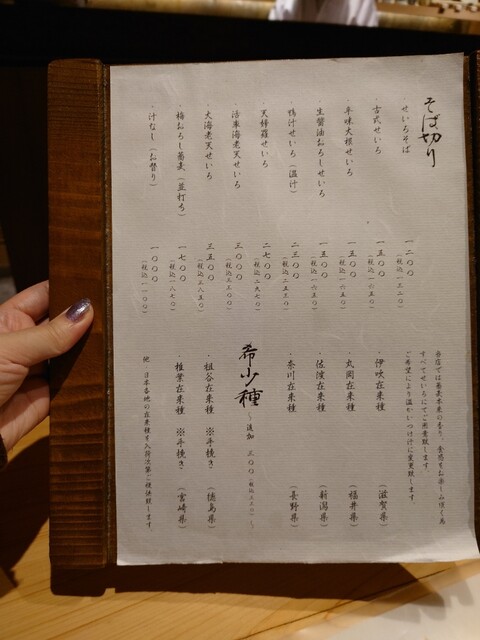 そば切り
せいろそば 一二〇〇（税込一三二〇）
・古式せいろ 一五〇〇（税込一六五〇）
・辛味大根せいろ 一五〇〇（税込一六五〇）
・生醤油おろしせいろ 一五〇〇（税込一六五〇）
・鴨汁せいろ（温汁） 二三〇〇（税込二五三〇）
・天麩羅せいろ 二七〇〇（税込二九七〇）
・活車海老天せいろ 三〇〇〇（税込三三〇〇）
・大海老天せいろ 三五〇〇（税込三八五〇）
・梅おろし蕎麦（並打ち） 一七〇〇（税込一八七〇）
・汁なし（お替り） 一〇〇〇（税込一一〇〇）
当店では蕎麦本来の香り、食感をお楽しみ頂く為
すべてせいろにてご用意致します。
ご希望により温かいつけ汁に変更致します
・伊吹在来種（滋賀県）
・丸岡在来種（福井県）
・佐渡在来種（新潟県）
・奈川在来種（長野県）
希少種 〜追加 三〇〇（税込三三〇）〜
・祖谷在来種 ※手挽き（徳島県）
・椎葉在来種 ※手挽き（宮崎県）
他 日本各地の在来種を入荷次第ご提供致します。